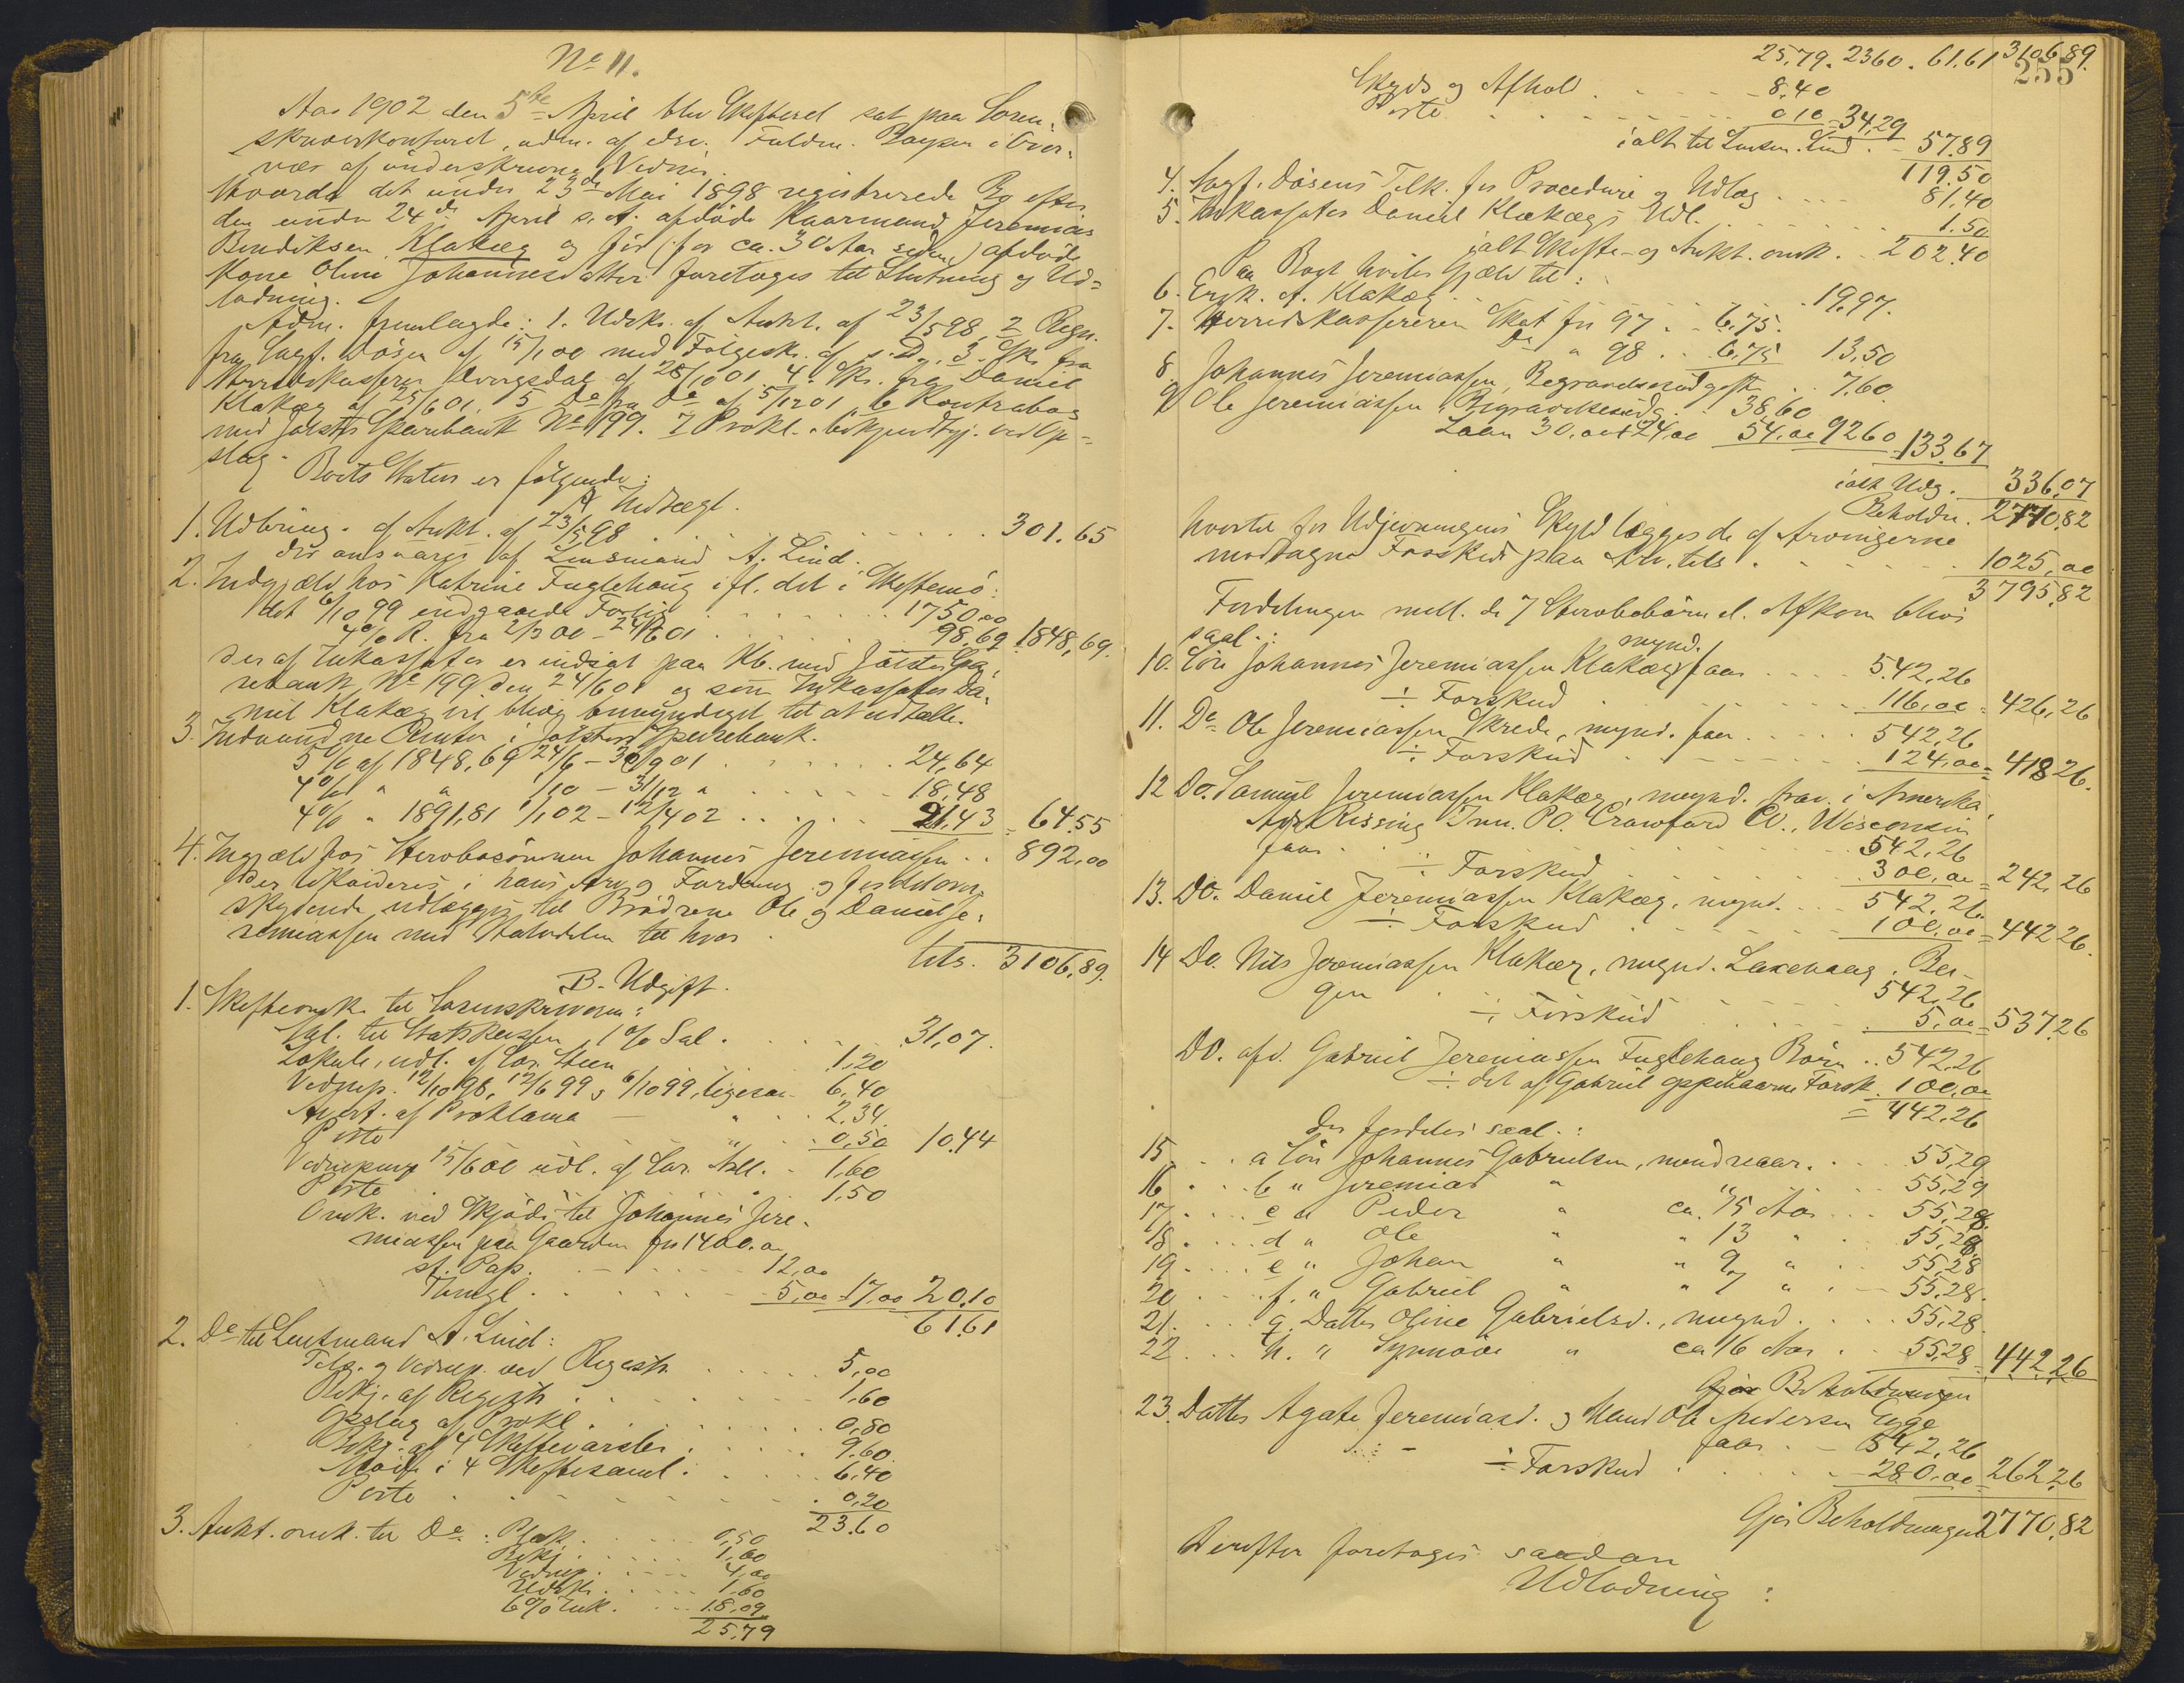 No 11.
Aar 1902 den 5te April blev Skifteret sat paa Soren-
skriverkontoret, adm. af edsv. Fuldm. Booysen i Over-
vær af underskrevne Vidner.
Hvorda det under 23de Mai 1898 registrerede Bo efter
den under 24de April s. A. afdøde Kaarmand Jeremias
Bendiksen Klakeg og før (for ca. 30 Aar siden) afdøde
Kone Oline Johannesdatter foretoges til Slutning og Ud-
lodning.
Adm. fremlagde: 1. Udskr. af Aukt. af 23/5 98, 2 Regn.
fra Sagf. Døsen af 15/1 00 med Følgeskr. af s. D., 3. Skr. fra
Herredskasserer af 28/10 01. 4. Skr. fra Daniel
Klakeg af 25/6 01. 5 Do fra Do af 5/12 01 6 Kontrabog
med Jølsters Sparebank No 199. 7 Prokl. bekjendtgj. ved Op-
slag.
Boets Status er følgende:
A Indtægt.
1. Udbring. af Aukt. af 23/5 98 . . . 301.65
der ansvares af Lensmand A. Lind.
2. Indgjæld hos Katrine Fuglehaug ifl. det i Skiftemø-
det 6/10 99 indgaaede Forlig . . . 1750,00
4% R. fra 2/3 00 - 24/6 01 . . . 98,69 1848,69.
der af Inkassator er indsat paa Kb. med Jølster Spa-
rebank No 199 den 24/6 01 og som Inkassator Da-
niel Klakeg vil blive bemyndiget til at udhæve.
3. Indvundne Renter i Jølsters Sparebank.
5% af 1848,69 24/6 - 30/9 01 . . . 24,64
4% " " 1/10 - 31/12 " . . . 18,48
4% " 1891,81 1/1 02 - 12/4 02 . . . 21,43 = 64.55
4. Indgjæld hos Stervbosønnen Johannes Jeremiassen . . 892,00
der likvideres i hans Arv og Fordring og forsaavidt over-
skydende udlægges til Brødrene Ole og Daniel Je-
remiassen med Halvdelen til hver.
tils. 3106,89.
B. Udgift.
1. Skifteomk. til Sorenskriveren:
Sal. til Statskassen 1% Sal. . . . 31,07.
Lokale, udl. af Sor. Steen 1,20
Vidnep. 12/10 98, 12/6 99 og 6/10 99, ligesaa 6,40
Avert. af Proklama — " . . 2.34
Porto " . . 0,50 10.44
Vidnepenge 15/6 01 udl. af Sor. . 1,60
Porto . . . 1,50
Omk. ved Skjøde til Johannes Jere-
miassen paa Gaarden for 1400.00
st. Pap. . . . 12,00
Tingl. . . . 5,00 17,00 20,10
61.61
2. Do til Lensmand A. Lind:
Tilg. og Vidnep. ved Registr. . . . 5,00
Bekj. af Registr. . . . 1,60
Opslag af Prokl. . . . 0,80
Bekj. af 4 Skiftevarsler . . . 9.60
Møde i 4 Skiftesaml. . . . 6,40
Porto . . . 0,20
23.60
3. Aukt. omk. til Do: Plak. . . . 0,50
Bekj. . . . 1,60
Vidnep. . . . 4,00
Udskr. . . . 1,60
6% Ink. . . . 18,09
25,79
25,79. 2360. 61.61 3106.89.
255
Skyds og Afhold . . . 8.40
Porto . . . 0 10 = 34,29
ialt til Lensm. Lind . . 57.89
119.50
4. Sagf. Døsens Tilk. for Procedure og Udlæg . . . 81,40
5. Inkassator Daniel Klakegs Udl. . . . 1.50
ialt Skifte- og Aukt. omk. . 202.40
Paa Boet hviler Gjæld til:
6. Ersk. A. Klakeg . . . 19,97.
7. Herredskassereren Skat for 97 . . 6,75.
Do " 98 . . 6,75 13.50
8. Johannes Jeremiassen, Begravelsesudgift . . 7.60.
9 Ole Jeremiassen, Begravelsesudg. . . 38,60
Laan 30,00 + 24,00 54,00 9260 133.67
ialt Udg. 336,07
Beholdn. 2770,82
hvortil for Udjevningens Skyld lægges de af Arvingerne
modtagne Forskud paa Arv, tils. . . . 1025,00
3795,82
Fordelingen mell. de 7 Stervbobørn el. Afkom blir
saal.:
10. Søn Johannes Jeremiassen Klakeg mynd. faar . . . 542,26
÷ Forskud . . . 116,00 = 426,26
11. Do Ole Jeremiassen Skrede, mynd. faar . . . 542,26
÷ Forskud . . . 124,00 = 418 26.
12 Do. Samuel Jeremiassen Klakeg, mynd. frav. i Amerika,
Adr. Rissing Inn. P.O. Crawford Co., Wisconsin
faar . . . 542,26
÷ Forskud . . . 300,00 = 242,26
13. Do. Daniel Jeremiassen Klakeg, mynd. . . 542,26
÷ Forskud . . . 100,00 = 442 26.
14 Do. Nils Jeremiassen Klakeg, mynd. Laxevaag, Ber-
gen . . . 542,26
÷ Forskud . . . 5,00 = 537,26
Do. afd. Gabriel Jeremiassen Fuglehaug Børn . . 542,26
÷ det af Gabriel oppebaarne Forsk. 100,00
= 442,26
der fordeles saal.:
15 . . . a Søn Johannes Gabrielsen, mindreaar. . . . 55,29
16 . . . b " Jeremias " " . . . 55,29
17 . . . c " Peder " ca. 15 Aar . . . 55,28.
18 . . . d " Ole " " 13 " . . . 55,28
19 . . . e " Johan " " 9 " . . . 55,28
20 . . . f. " Gabriel " " 7 " . . . 55,28.
21. . . g. Datter Oline Gabrielsd., mynd. . . . 55,28.
22 . . . h. " Synnøve " ca 16 Aar . . 55,28 = 442,26
Gjør Beholdningen
23. Datter Agate Jeremiasd. og Mand Ole Andersen Egge
faar . . 542,26
÷ Forskud . . . 280,00 = 262,26
Gjør Beholdningen 2770,82
Derefter foretoges saadan
Udlodning: